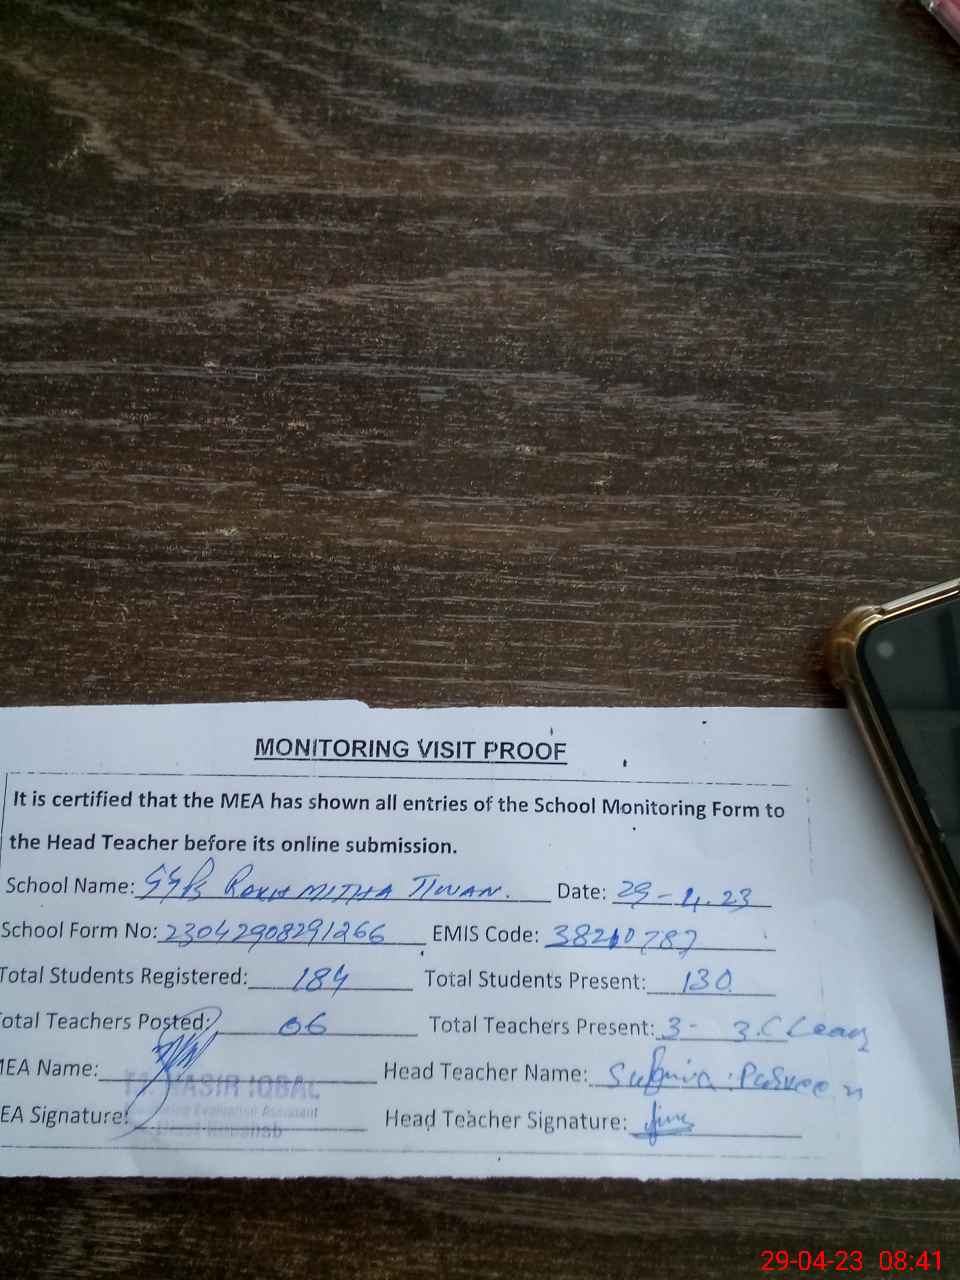 MONITORING VISIT PROOF
It is certified that the MEA has shown all entries of the School Monitoring Form to
the Head Teacher before its online submission.
School Name: GGPS MITHA TIWAN. Date: 29-4.23
School Form No: 23042908291266 EMIS Code: 38210787
Total Students Registered: 184 Total Students Present: 130
otal Teachers Posted: 06 Total Teachers Present: 3- 3.C Leave
EA Name: NASIR IQBAL Head Teacher Name: Parveen
Evaluation Assistant
EA Signature: Head Teacher Signature:
29-04-23 08:41